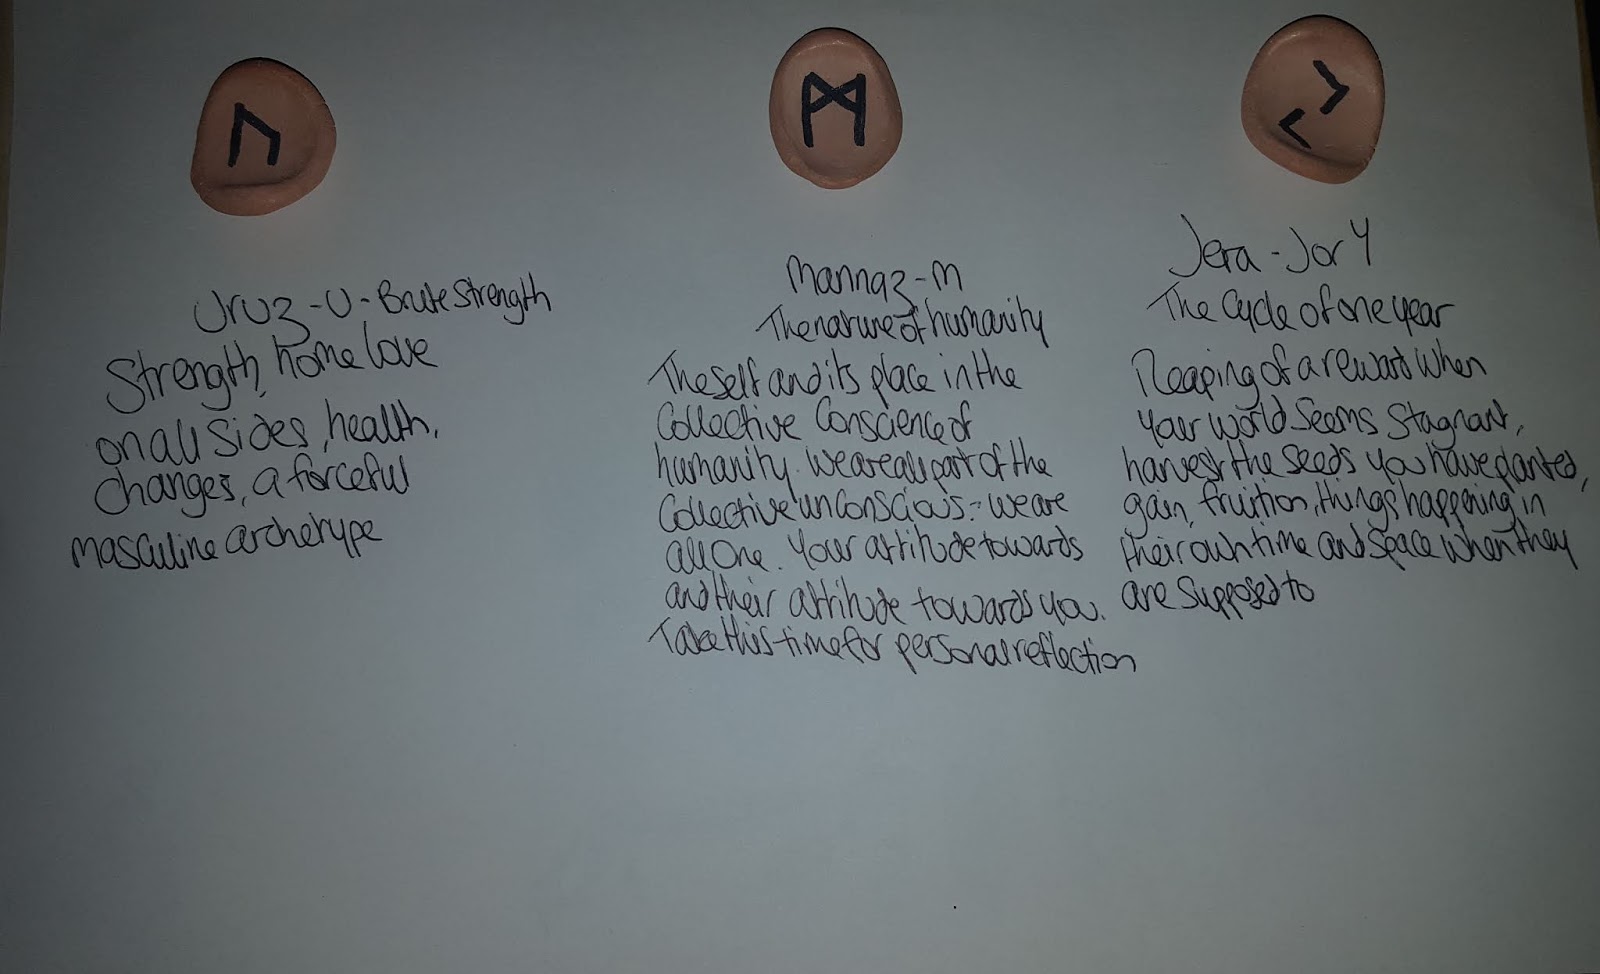 ᚢ
Uruz - U - Brute Strength
Strength, home love
on all sides, health,
changes, a forceful
masculine archetype
ᛗ
Mannaz - M
The nature of humanity
The self and its place in the
Collective Conscience of
humanity. We are all part of the
Collective unconscious - we are
all One. Your attitude towards
and their attitude towards you.
Take this time for personal reflection
ᛃ
Jera - J or Y
The Cycle of one year
Reaping of a reward when
your world seems stagnant,
harvest the seeds you have planted,
gain, fruition, things happening in
their own time and space when they
are supposed to